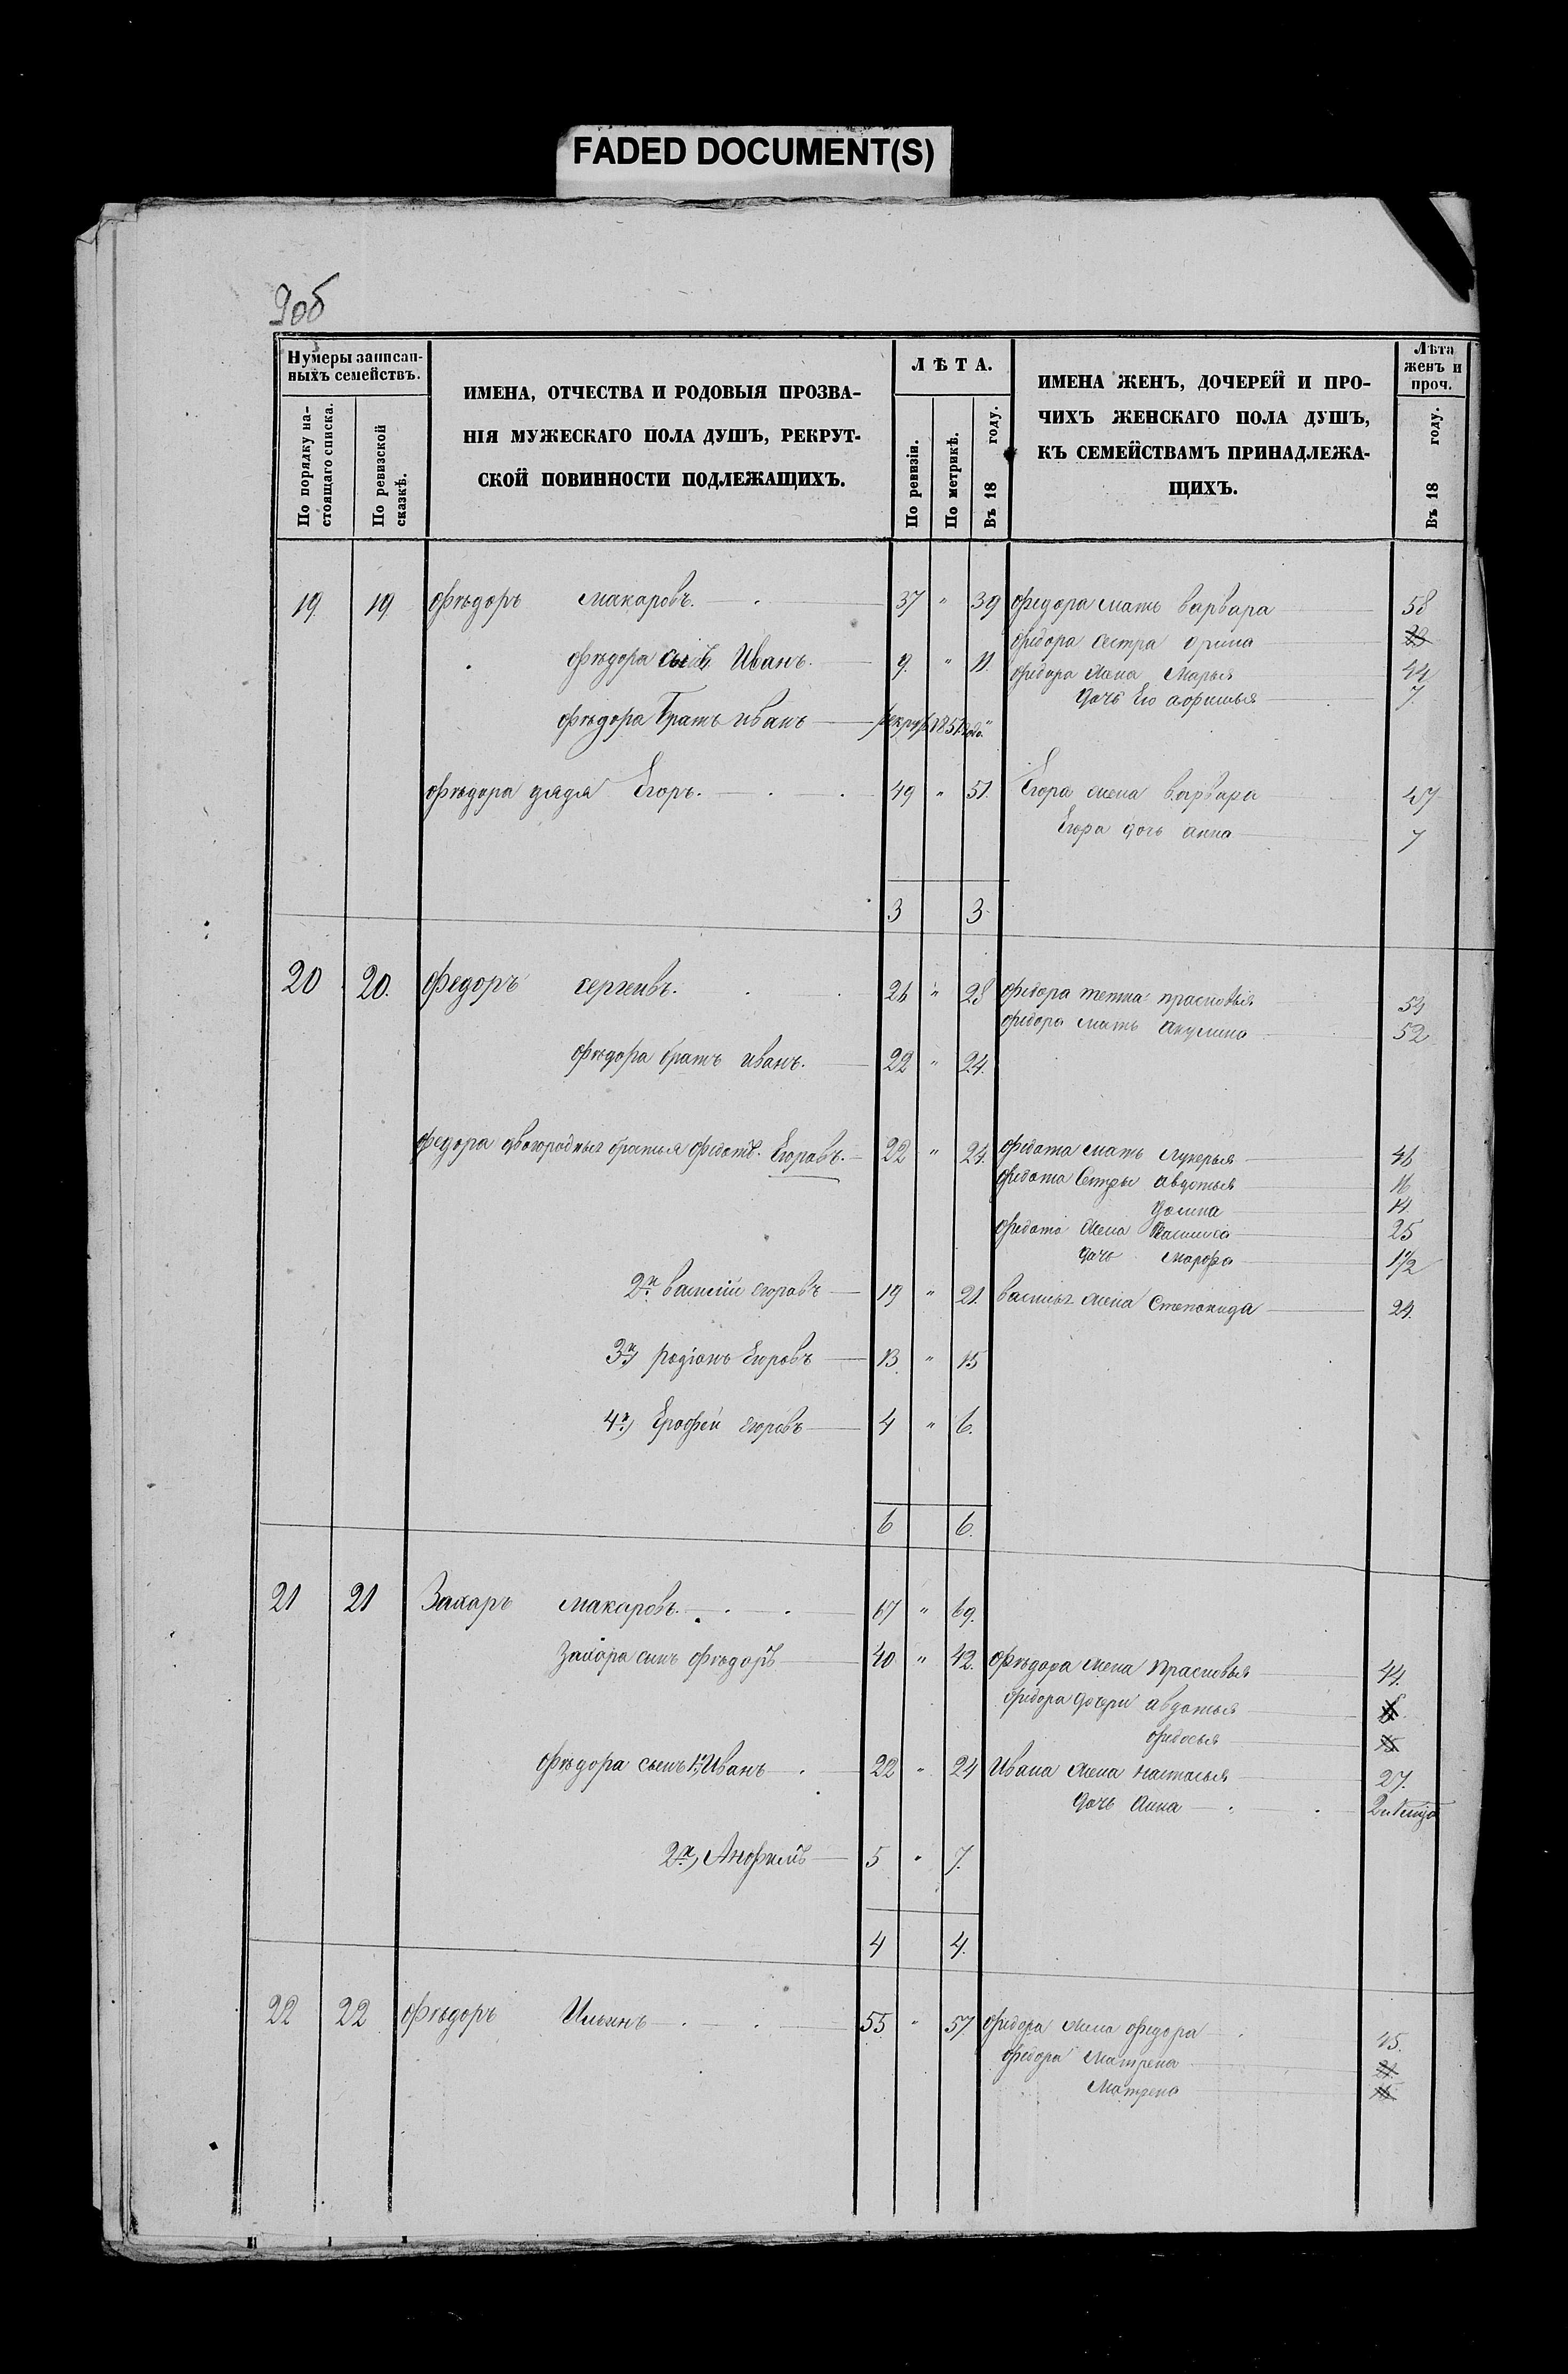 FADED DOCUMENT(S)
9об
Нумеры записан-
ныхъ семействъ.
По порядку на-
стоящаго списка.
По ревизской
сказкѣ.
ИМЕНА, ОТЧЕСТВА И РОДОВЫЯ ПРОЗВА-
НІЯ МУЖЕСКАГО ПОЛА ДУШЪ, РЕКРУТ-
СКОЙ ПОВИННОСТИ ПОДЛЕЖАЩИХЪ.
ЛѢТА.
По ревизіи.
По метрикѣ.
Въ 18 году.
ИМЕНА ЖЕНЪ, ДОЧЕРЕЙ И ПРО-
ЧИХЪ ЖЕНСКАГО ПОЛА ДУШЪ,
КЪ СЕМЕЙСТВАМЪ ПРИНАДЛЕЖА-
ЩИХЪ.
Лѣта
женъ и
проч.
Въ 18 году.
19 19 Фѣдоръ Макаровъ. 37 " 39 Федора мать варвара 58
Федора сестра орина
Фѣдора сынъ Иванъ. 9. " 11. Федора жена Марья 44
дочь Его 7.
Фѣдора братъ иванъ рекрутъ 1851 года
Фѣдора дядя Егоръ. 49 " 51. Егора жена варвара 47
Егора дочь анна 7
3 3
20 20. Федоръ сергеивъ. 26 " 28 Федора тетка прасковья 54
Федора мать Акулина 52
Фѣдора братъ иванъ. 22 " 24.
Федора двоюродныя братья Федотъ. Егоравъ. 22 " 24. Федота мать лукерья 46
Федота Сестры авдотья 16
14.
Федота жена 25
дочь марфа 1 1/2
2й василий егоравъ 19 " 21. василья жена Степанида 24.
3й родіонъ Егоровъ 13. " 15
4й) Ерофеи егоровъ 4 " 6.
6 6.
21 21 Захаръ Макаровъ. 67 " 69.
Захара сынъ Фѣдоръ 40 " 42. Фѣдора жена Прасковья 44.
Федора дочери авдотья
Федосья
Фѣдора сынъ 1й Иванъ 22 " 24 Ивана жена настасья 27.
дочь Анна
2й) Анофріи 5 " 7.
4 4.
22 22 Фѣдоръ Ильинъ 55 " 57 Федора жена Федора 45.
Федора Матрена
Матрена